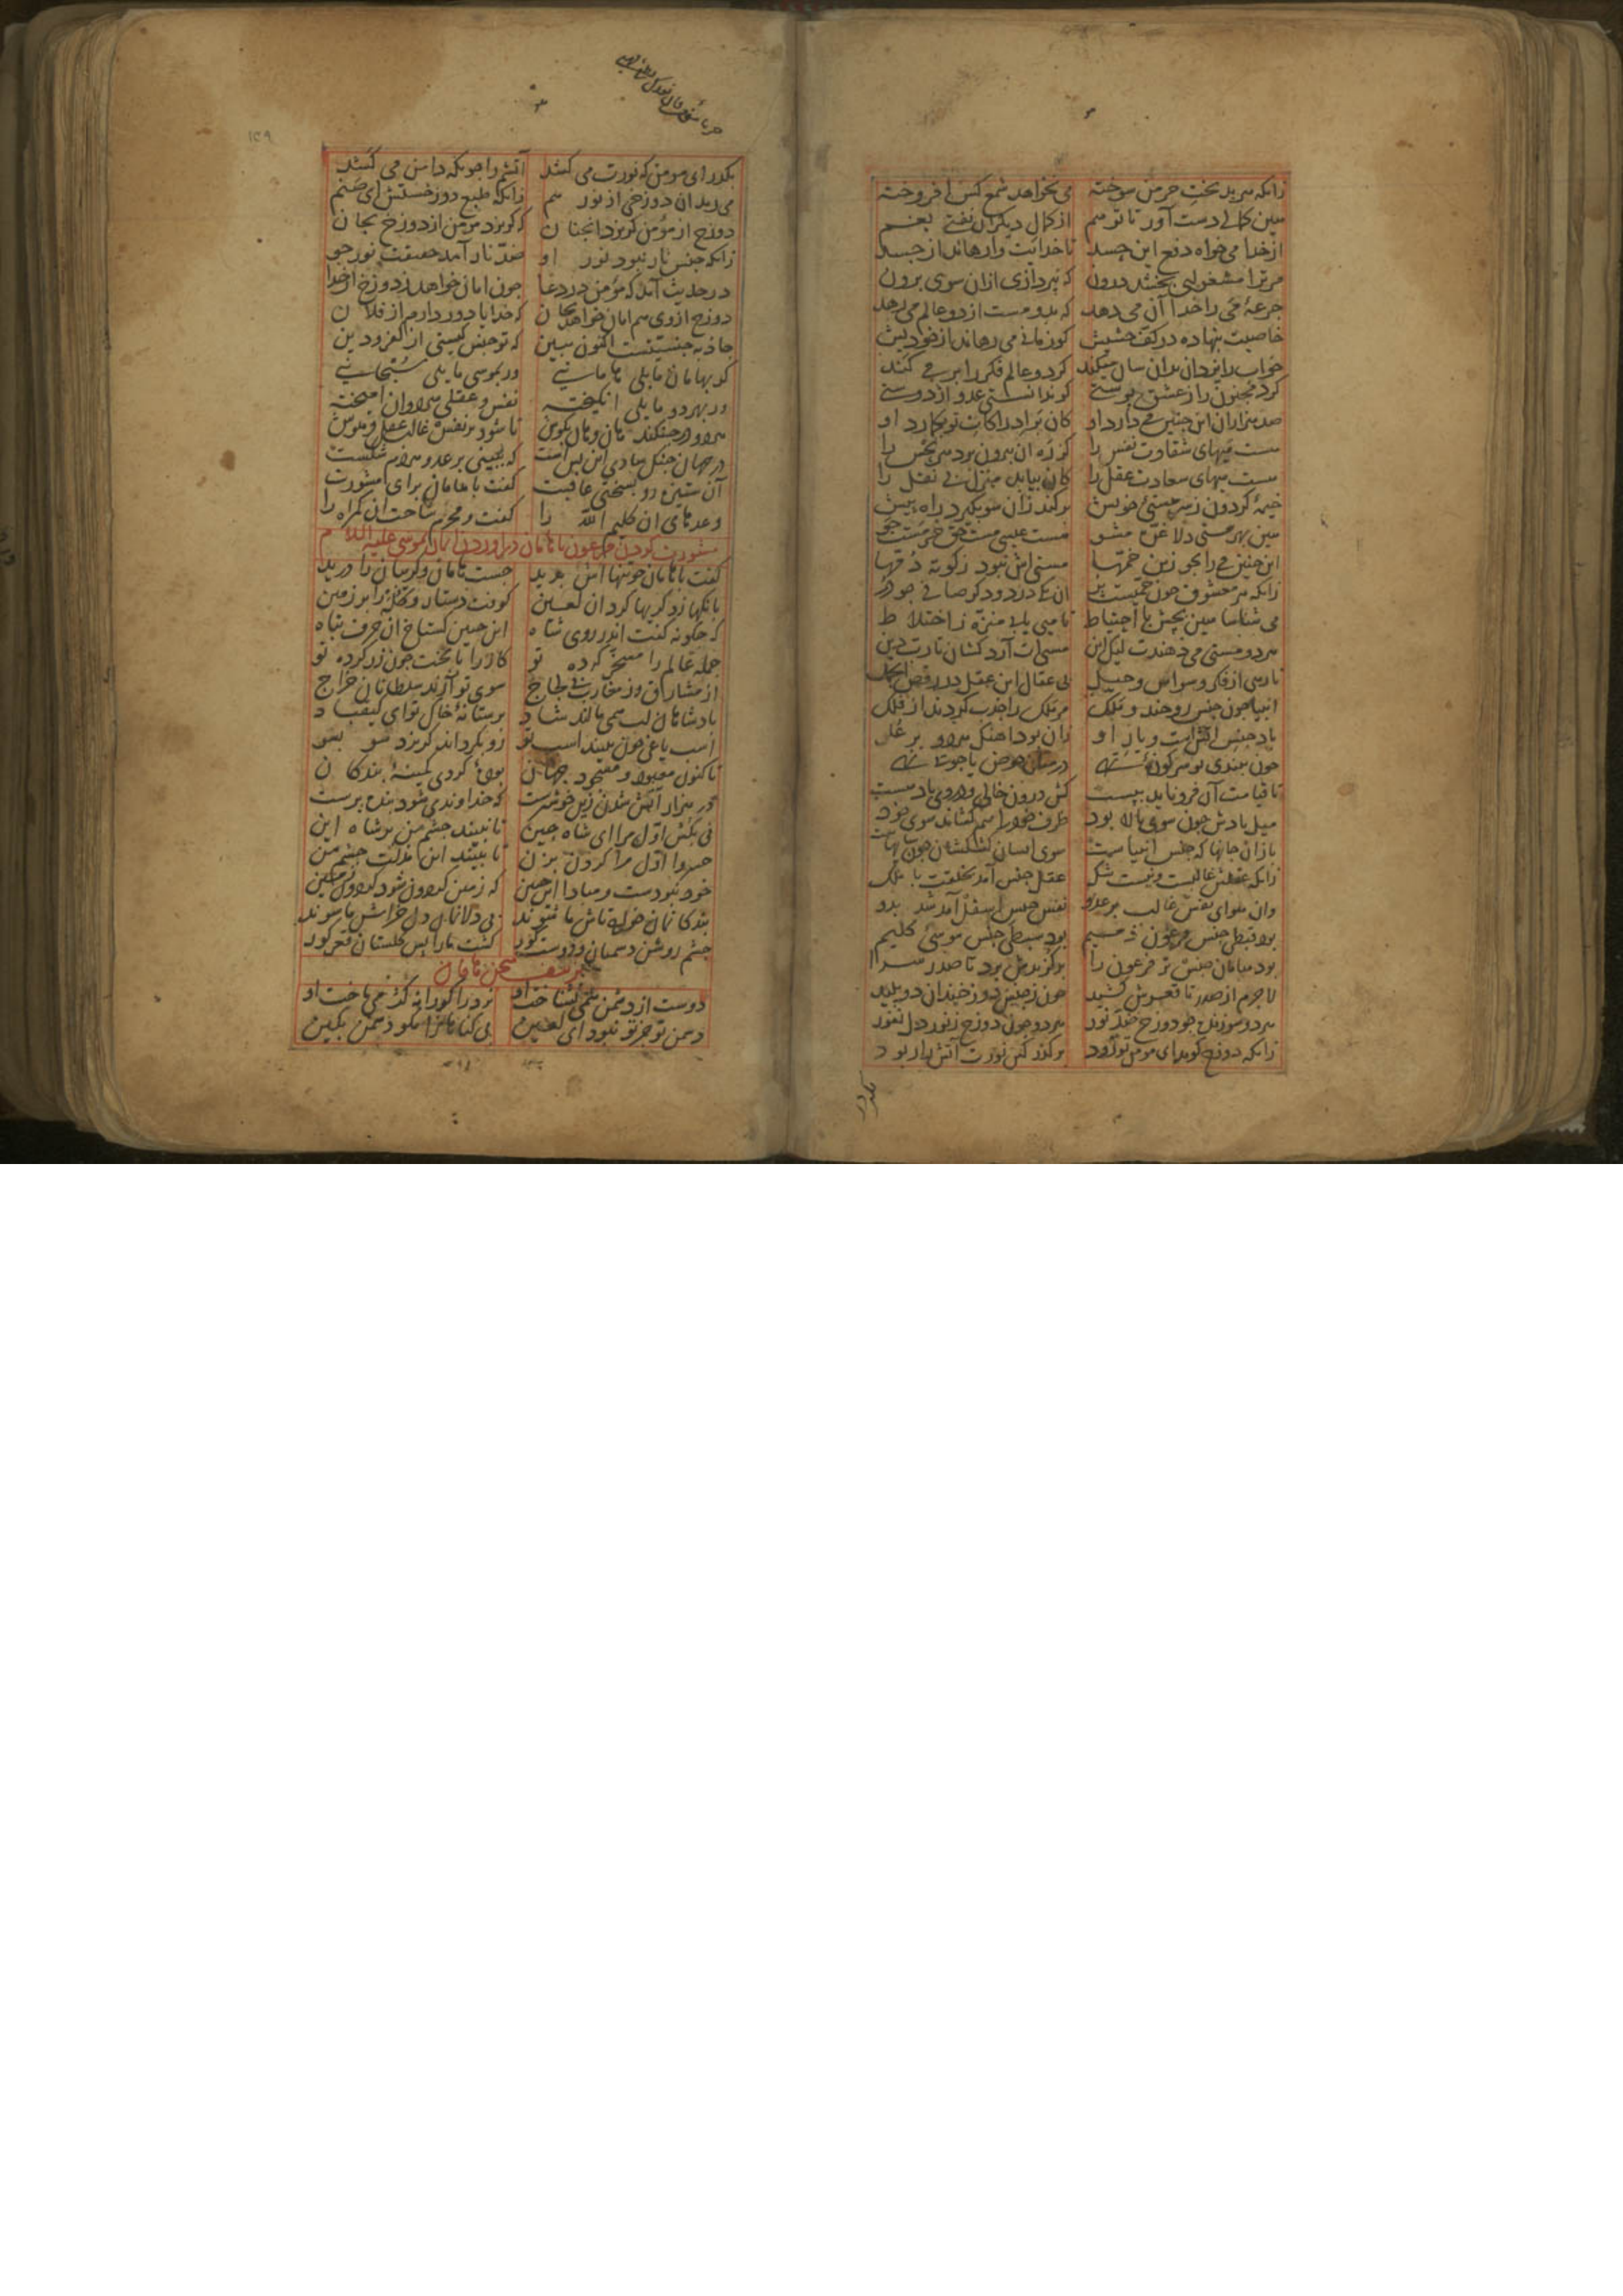 زانکه هر بدبخت خرمن سوخته می نخواهد شمع کس افروخته
هین کمالی دست آور تا تو هم از کمال دیگران نفتی بغم
از خدا می خواه دفع این حسد تا خدایت وارهاند از جسد
مر ترا مشغولیی بخشد درون که نپردازی ازان سوی برون
جرعهٔ می را خدا آن می دهد که بدو مست از دو عالم می رهد
خاصیت بنهاده در کف حشیش کو زمانی می رهاند از خودیش
خواب را یزدان بدان سان میکند کز دو عالم فکر را بر می کند
کرد مجنون را ز عشق پوستی کو ندانستی عدو از دوستی
صد هزاران این چنین می دارد او که بر ادراکات تو بگمارد او
هست میهای شقاوت نفس را که ز ره بیرون برد مر نحس را
هست میهای سعادت عقل را کان بیابد منزل بی نقل را
خیمهٔ کردون ز سرمستی خویش برکند زان سو بکیرد راه پیش
هین بهر مستی دلا غره مشو هست عیسی مست حق خر مست جو
این چنین می را بجو زین خمها مستی اش نبود ز کوته دمها
زانکه هر معشوق چون خمیست پر آن یکی درد و دکر صافی چو در
می شناسا هین بچش با احتیاط تا میی یابی منزه ز اختلاط
هر دو مستی می دهندت لیک این مستی ات آرد کشان تا رب دین
تا رهی از فکر و وسواس و حیل بی عقال این عقل در رقص الجمل
انبیا چون جنس روحند و ملک مر ملک را جذب کردند از فلک
باد جنس آتش است و یار او زان بود آهنک هر دو بر علو
چون ببندی تو سر کوزهٔ تهی در میان حوض یا جوئی نهی
تا قیامت آن فرو ناید ببست که درون خالی و در وی باد هست
میل بادش چون سوی بالا بود ظرف خود را هم کشاند سوی خود
باز آن جانها که جنس انبیاست سوی ایشان کش کشان چون سایهاست
زانکه عقلش غالبست و نیست شک عقل جنس آمد بخلقت با ملک
وان هوای نفس غالب بر عدو نفس جنس اسفل آمد شد بدو
بود قبطی جنس فرعون ذمیم بود سبطی جنس موسی کلیم
بود هامان جنس تر فرعون را برکزیدش برد تا صدر سرا
لاجرم از صدر تا قعرش کشید چون ز جنس دوزخند آن دو پلید
هر دو سوزنده چو دوزخ ضد نور هر دو چون دوزخ ز نور دل نفور
زانکه دوزخ کوید ای مومن تو زود برکذر کین نورت آتش را ربود
بکذر
بکذر ای مومن که نورت می کشد آتشم را چونکه دامن می کشد
می رمد آن دوزخی از نور هم زانکه طبع دوزخستش ای صنم
دوزخ از مؤمن کریزد آنچنان که کریزد مؤمن از دوزخ بجان
زانکه جنس نار نبود نور او ضد نار آمد حقیقت نور جو
در حدیث آمد که مؤمن در دعا چون امان خواهد ز دوزخ از خدا
دوزخ از وی هم امان خواهد بجان که خدایا دور دارم از فلان
جاذبهٔ جنسیتست اکنون ببین که تو جنس کیستی از کفر و دین
کر بهامان مایلی هامانیی ور بموسی مایلی سبحانیی
ور بهر دو مایلی انکیخته نفس و عقلی هر دوان آمیخته
هر دو در جنکند هان و هان بکوش تا شود بر نفس غالب عقل و هوش
در جهان جنک شادی این بس است که ببینی بر عدو هر دم شکست
آن ستیزه رو بسختی عاقبت کفت با هامان برای مشورت
وعدهای آن کلیم الله را کفت و محرم ساخت آن کمراه را
مشورت کردن فرعون با هامان در آوردن ایمان بموسی علیه السلام
کفت با هامان چو تنهااش بدید جست هامان و کریبان را درید
بانکها زد کریها کرد آن لعین کوفت دستار و کله را بر زمین
که چکونه کفت اندر روی شاه این چنین کستاخ آن حرف تباه
جمله عالم را مسخر کرده تو کار را با بخت چون زر کرده تو
از مشارق وز مغارب بی لجاج سوی تو آرند سلطانان خراج
پادشاهان لب همی مالند شاد بر ستانهٔ خاک تو ای کیقباد
اسب یاغی چون ببیند اسب تو رو بکرداند کریزد سو بسو
تا کنون معبود و مسجود جهان بودهٔ کردی کمینهٔ بندکان
در هزار آتش شدن زین خوشترست که خداوندی شود بنده پرست
نی بکش اول مرا ای شاه چین تا نبیند چشم من بر شاه این
خسروا اول مرا کردن بزن تا نبیند این مذلت چشم من
خود نبودست و مبادا این چنین که زمین کردون شود کردون زمین
بندکان مان خواجه تاش ما شوند بی دلان مان دل خراش ما شوند
چشم روشن دشمنان و دوست کور کشت ما را پس کلستان قعر کور
تزییف سخن هامان
دوست از دشمن همی نشناخت او نرد را کورانه کژ می باخت او
دشمن تو جز تو نبود ای لعین بی کناهان را مکو دشمن بکین
۱۳۹